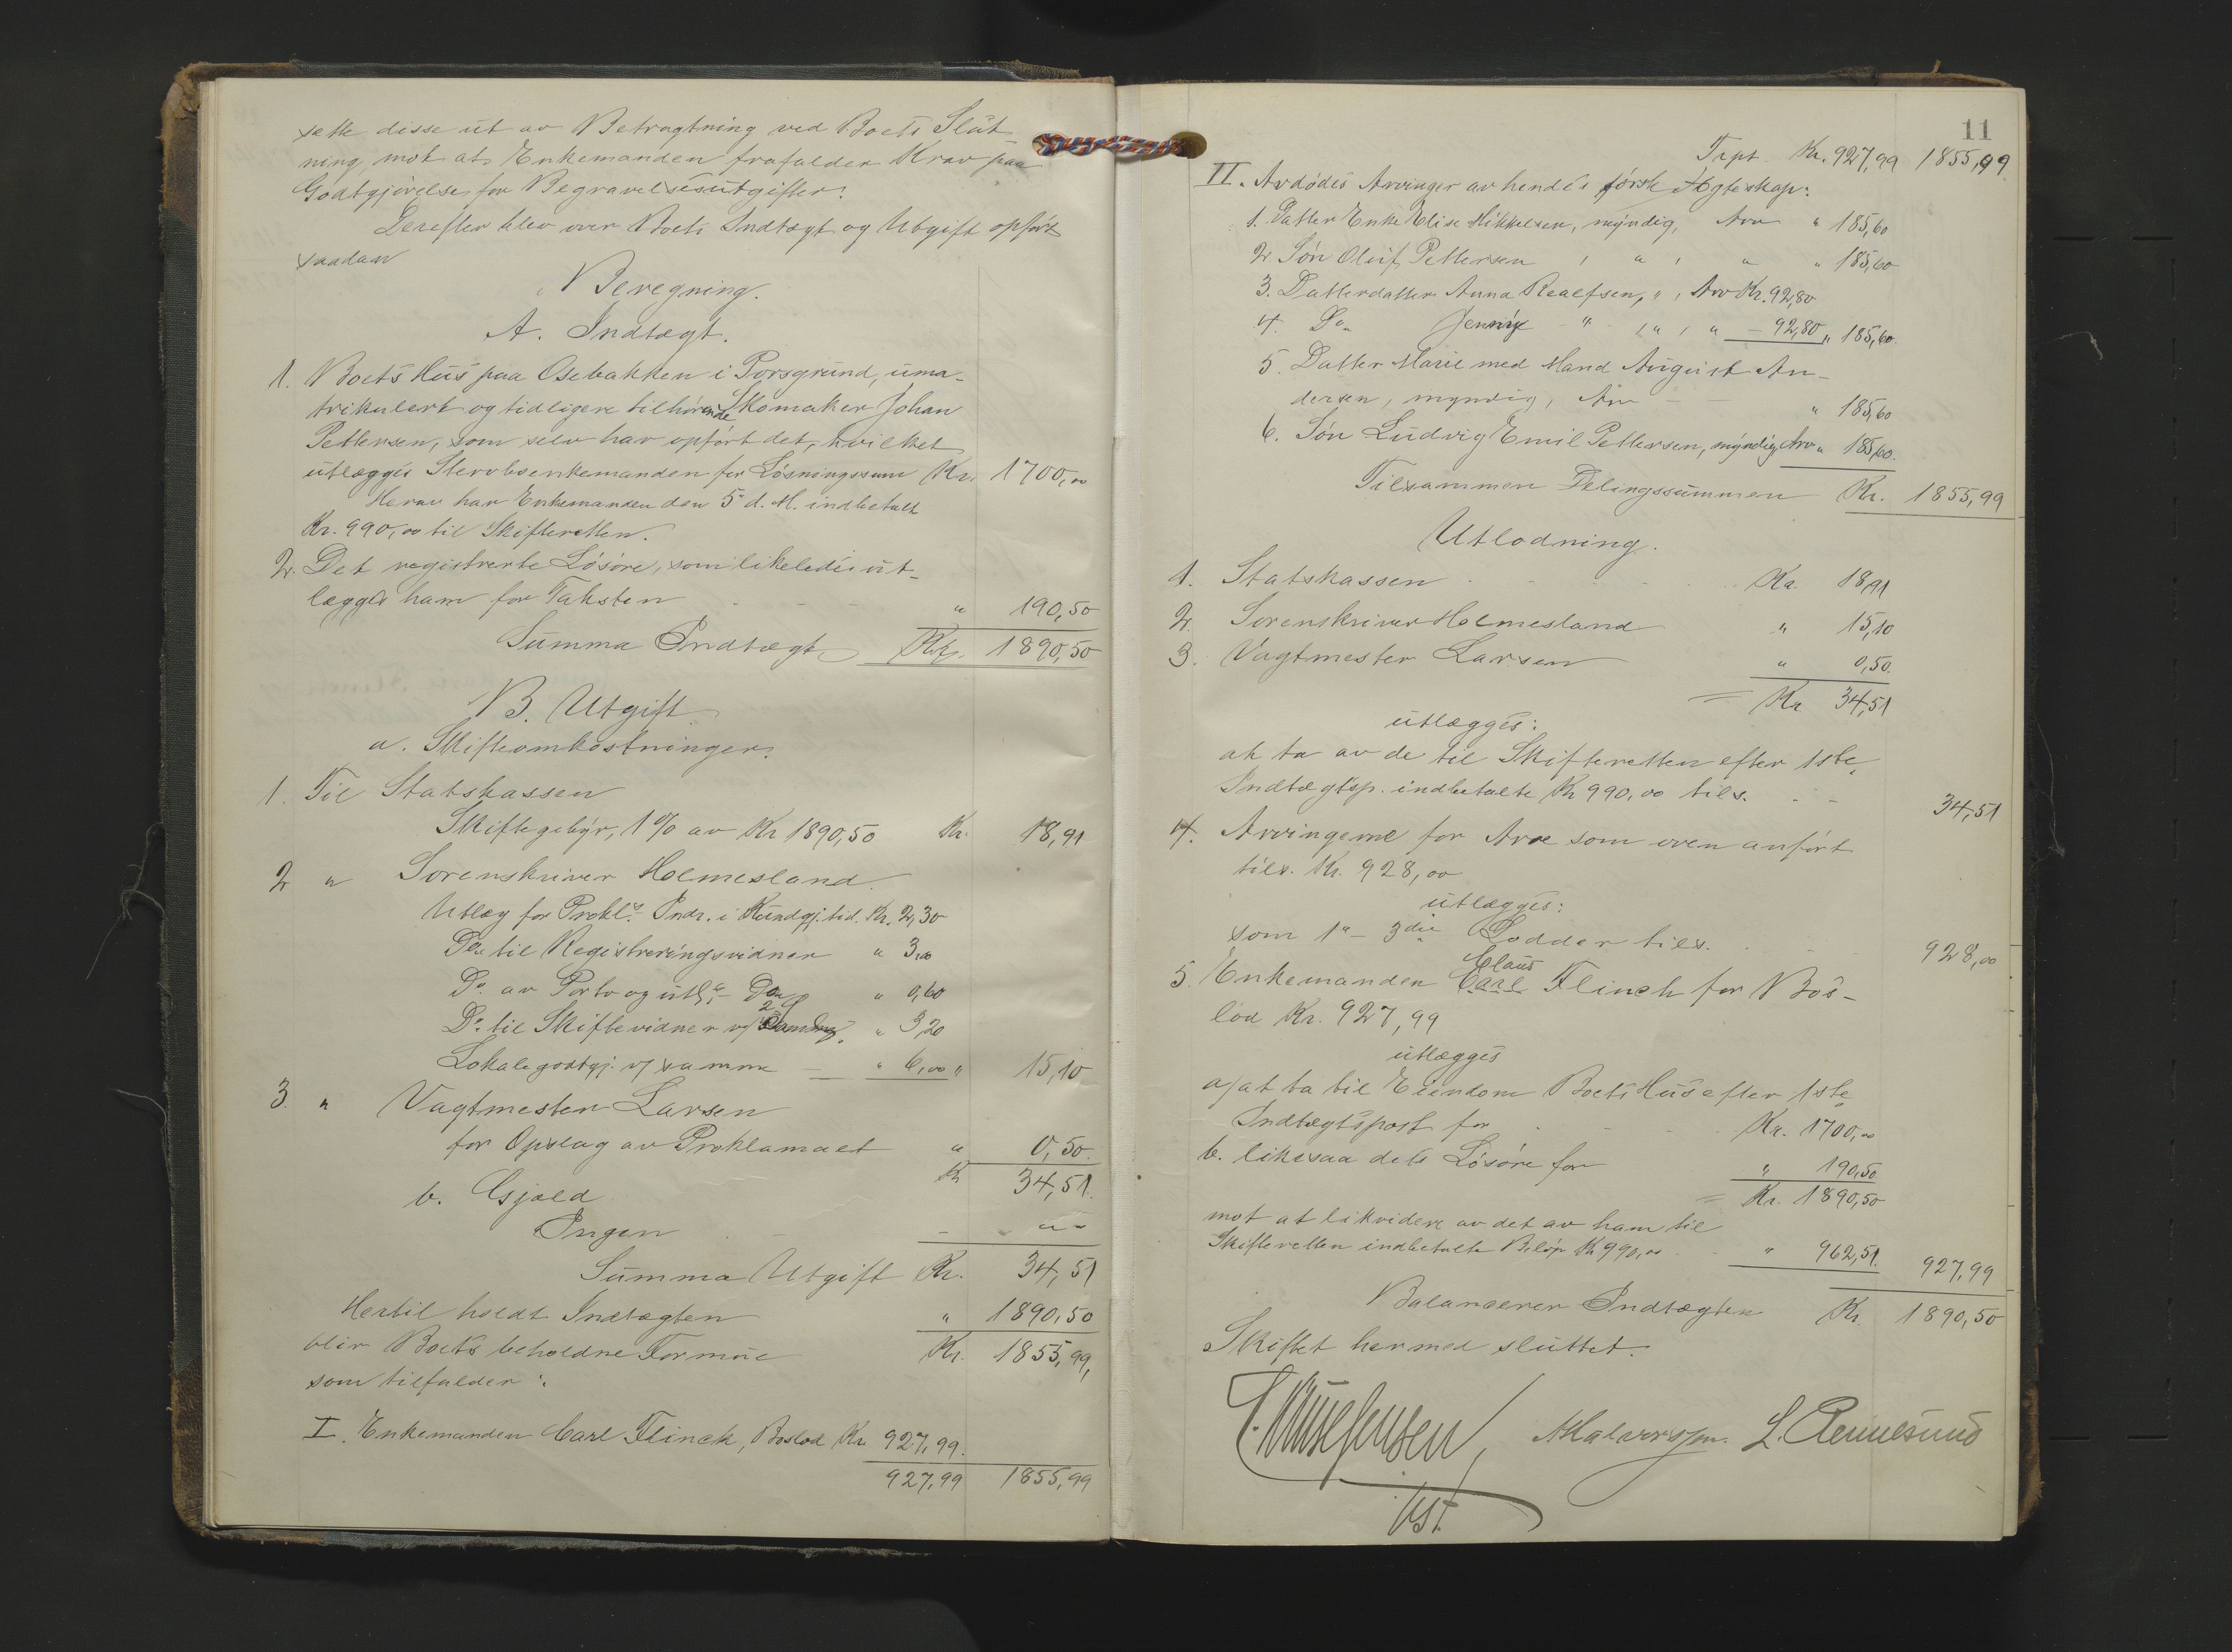 sette disse ut av Betragtning ved Boets Slut
ning, mot at Enkemanden frafalder Krav paa
Godtgjörelse for Begravelsesutgifter.
Derefter blev over Boets Indtægt og Utgift opfört
saadan
Beregning.
A. Indtægt.
1. Boets Hus paa Osebakken i Porsgrund, uma-
trikulert og tidligere tilhörende Skomaker Johan
Pettersen, som selv har opfört det, hvilket
utlægges Stervboenkemanden for Lösningssum Kr. 1700,00
Herav har Enkemanden den 5te d. M. indbetalt
Kr. 990,00 til Skifteretten.
2. Det registrerte Lösöre, som likeledes ut-
lægges ham for Taksten - - - " 190,50
Summa Indtægt Kr. 1890,50
B. Utgift
a. Skifteomkostninger.
1. Til Statskassen
Skiftegebyr, 1% av Kr 1890,50 Kr. 18,91
2 " Sorenskriver Holmesland
Utlæg for Prokl.s Indr. i Kundgj.tid. Kr. 2,30
Do til Registreringsvidner " 3,00
Do av Porto og " 0,60
Do til Skiftevidner v/ 2 " 3,20
Lokalegodtgj. v/ samme — " 6,00 " 15,10
3. " Vagtmester Larsen
for Opslag av Proklamaet " 0,50.
Kr 34,51.
b. Gjæld
Ingen - - " -
Summa Utgift Kr. 34,51
Hertil holdt Indtægten " 1890,50
blir Boets beholdne Formue Kr. 1855,99,
som tilfalder:
I. Enkemanden Carl Flinck, Boslod Kr. 927,99.
927,99 1855,99
11
Trpt. Kr. 927,99 1855,99
II. Avdödes Arvinger av hendes förste Ægteskap:
1. Datter Enke Elise Mikkelsen, myndig, Arv " 185,60
2 Sön Oluf Pettersen , " , " " 185,60
3. Datterdatter Anna Realfsen, " , Arv Kr. 92,80
4. Do Jenny - " , " , " - 92,80 " 185,60.
5. Datter Marie med Mand August An-
dersen, myndig, Arv - - " 185,60
6. Sön Ludvig Emil Pettersen, myndig, Arv " 185,60.
Tilsammen Delingssummen Kr. 1855,99
Utlodning.
1. Statskassen - - - Kr. 18,91
2. Sorenskriver Holmesland " 15,10
3. Vagtmester Larsen " 0,50.
= Kr 34,51
utlægges:
at ta av de til Skifteretten efter 1ste
Indtægtsp. indbetalte Kr 990,00 tils. - - 34,51
4. Arvingerne for Arv som oven anfört
tils. Kr. 928,00
utlægges:
som 1a - 3die Lodder tils. - - 928,00
Claus
5. Enkemanden Carl Flinck for Bos-
lod Kr. 927,99
utlægges
a/ at ta til Eiendom Boets Hus efter 1ste
Indtægtspost for - - - Kr. 1700,00
b. likesaa dets Lösöre for " 190,50
= Kr. 1890,50
mot at likvidere av det av ham til
Skifteretten indbetalte Belöp Kr 990,00 - - " 962,51. 927,99
Balancerer Indtægten Kr. 1890,50
Skiftet hermed sluttet.
Kst.